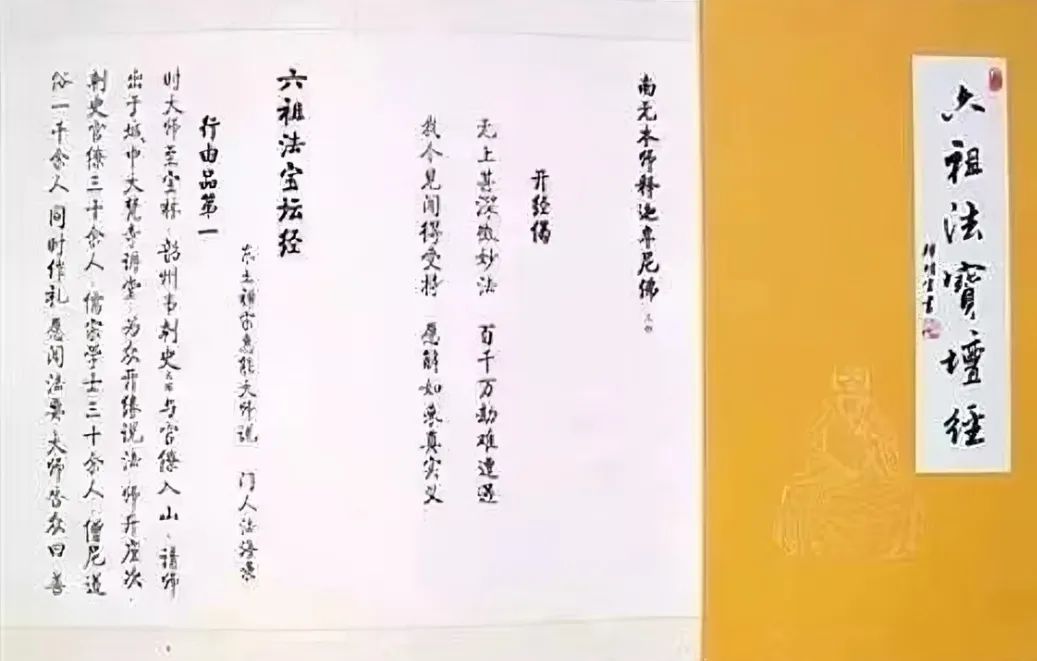 六祖法寶壇經
南无本师释迦牟尼佛 三称
开经偈
无上甚深微妙法 百千万劫难遭遇
我今见闻得受持 愿解如来真实义
六祖法宝坛经
东土禅宗惠能大师说 门人法海录
行由品第一
时大师至宝林、韶州韦刺史与官僚入山、请师
出于城中大梵寺讲堂、为众开缘说法、师升座次、
刺史官僚三十余人、儒宗学士三十余人、僧尼道
俗一千余人、同时作礼、愿闻法要、大师告众曰、善